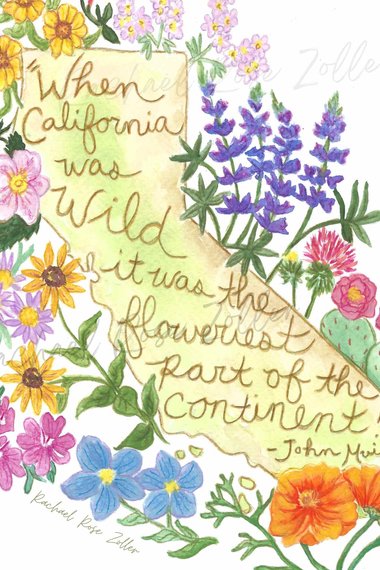 "When
California
was
Wild
it was the
floweriest
part of the
continent"
-John Mui
Rachael Rose Zoller
Rachael Rose Zolle
Rose Zoller